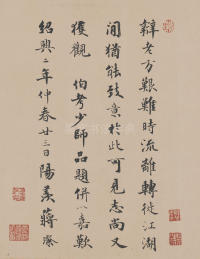 韓老方艱難時流離轉徙江湖
間猶能致意於此可見志尚又
獲觀 伯考少師品題併以嘉歎
紹興二年仲春廿三日陽羨蔣璨